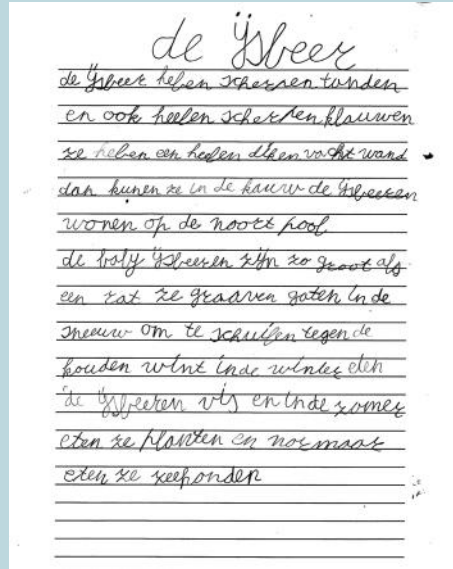 de ijsbeer
de ijsbeer heben scherpen tanden
en ook heelen scherpen klauwen
ze heben een heelen diken vacht wand
dan kunen ze in de kauw de ijsbeeren
wonen op de noort pool
de baby ijsbeeren zijn zo groot als
een rat ze graaven gaten in de
sneeuw om te schuilen tegen de
kouden wint in de winter eten
de ijsbeeren vis en in de zomer
eten ze planten en normaar
eten ze zeehonden